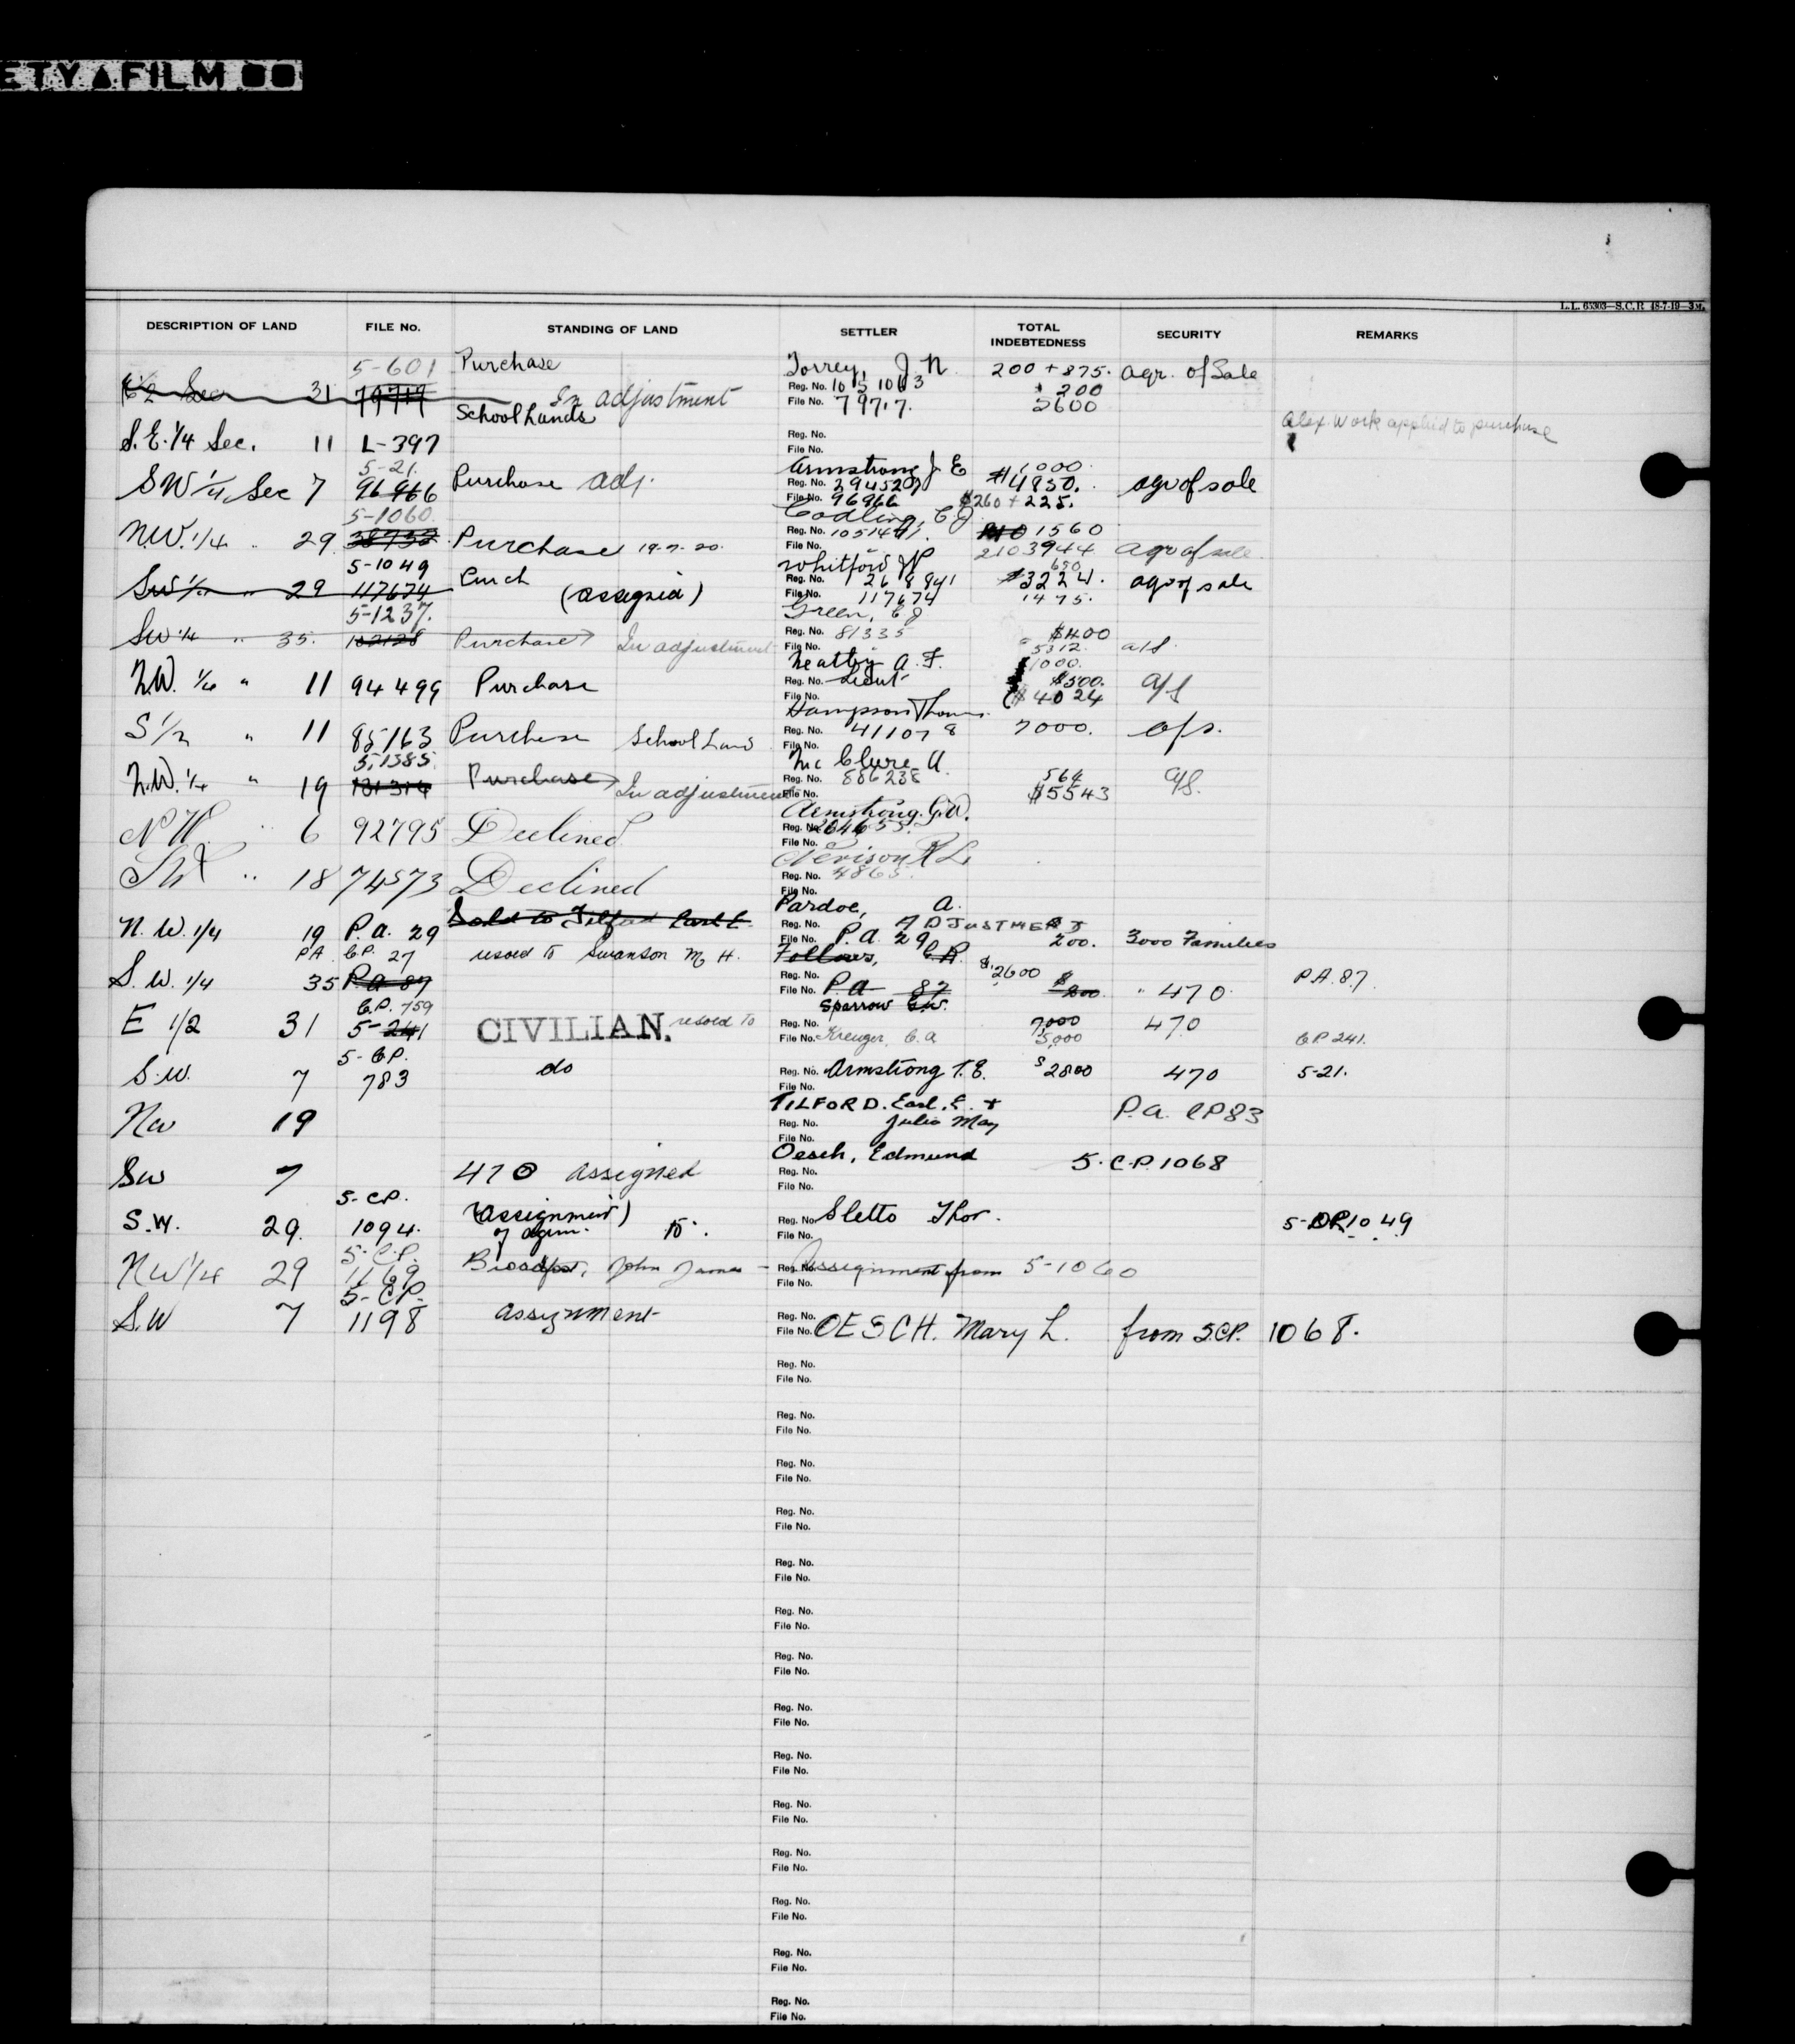 ETY FILM
L.L. 65303—S.C.R. 48-7-19—3M.
DESCRIPTION OF LAND FILE No. STANDING OF LAND SETTLER TOTAL INDEBTEDNESS SECURITY REMARKS
5-601 Purchase Torrey, J. N. 200 + 875. Agr. of Sale
E 1/2 Sec 31 79717 In adjustment Reg. No. 1051063 200
School Lands File No. 79717. 5600
Alex. Work applied to purchase
S.E. 1/4 Sec. 11 L-397 Reg. No.
File No.
5-21. Armstrong J. E 1000.
SW 1/4 Sec 7 96966 Purchase adj. Reg. No. $4850. agr of sale
File No. 96966 $260 + 225.
5-1060. Codling, C J
N.W. 1/4 " 29 38732 Purchase 19-7-20. Reg. No. 1560
File No. 2103944 agr of sale
5-1049 Purch Whitford 650
SW 1/4 " 29 117674 (assigned) Reg. No. 268841 $3224. agr of sale
File No. 117674 1475.
5-1237. Green,
SW 1/4 " 35. 102128 Purchase In adjustment Reg. No. 81335 $400
File No. 5312. a/s.
Neatby A. F. 1000.
N.W. 1/4 " 11 94499 Purchase Reg. No. Lieut $500. a/s
File No. $4024
Hampson Thomas
S 1/2 " 11 85163 Purchase School Land Reg. No. 411078 7000. a/s.
File No.
5,1385. McClure A.
N.W. 1/4 " 19 131314 Purchase In adjustment Reg. No. 886238 564 a/s.
File No. $5543
Armstrong. G.W.
N W. " 6 92795 Declined Reg. No. 204653.
File No.
Nevison R L.
" 18 74573 Declined Reg. No. 4865.
File No.
Sold to Tilford Earl E. Pardoe, A.
N. W. 1/4 19 P.A. 29 Reg. No. ADJUSTMENT
File No. P.A. 29 200. 3000 Families
PA C.P. 27 resold to Swanson M. H. Follows, C.R.
S. W. 1/4 35 P.A 87 Reg. No. $2600 P.A. 87.
File No. P.A 87 $200 " 470
C.P. 759 Sparrow G.W.
E 1/2 31 5-241 CIVILIAN. resold to Reg. No. 7,000 470
File No. Kreuger, C. A 5,000 C.P 241.
5- C.P.
S.W. 7 783 do Reg. No. Armstrong T. E. $2800 470 5-21.
File No.
TILFORD. Earl. E. +
NW 19 Reg. No. Julia May P.A. CP83
File No.
Oesch, Edmund
SW 7 470 assigned Reg. No. 5. C.P. 1068
File No.
5- C.P.
S.W. 29. 1094. (Assignment) of Agrm. to. Reg. No. Sletto Thor. 5-CP.1049
File No.
5- C.P.
NW 1/4 29 1169 John James — Reg. No. Assignment from 5-1060
File No.
5- CP.
S.W 7 1198 assignment Reg. No.
File No. OESCH. Mary L. from 5.CP. 1068.
Reg. No.
File No.
Reg. No.
File No.
Reg. No.
File No.
Reg. No.
File No.
Reg. No.
File No.
Reg. No.
File No.
Reg. No.
File No.
Reg. No.
File No.
Reg. No.
File No.
Reg. No.
File No.
Reg. No.
File No.
Reg. No.
File No.
Reg. No.
File No.
Reg. No.
File No.